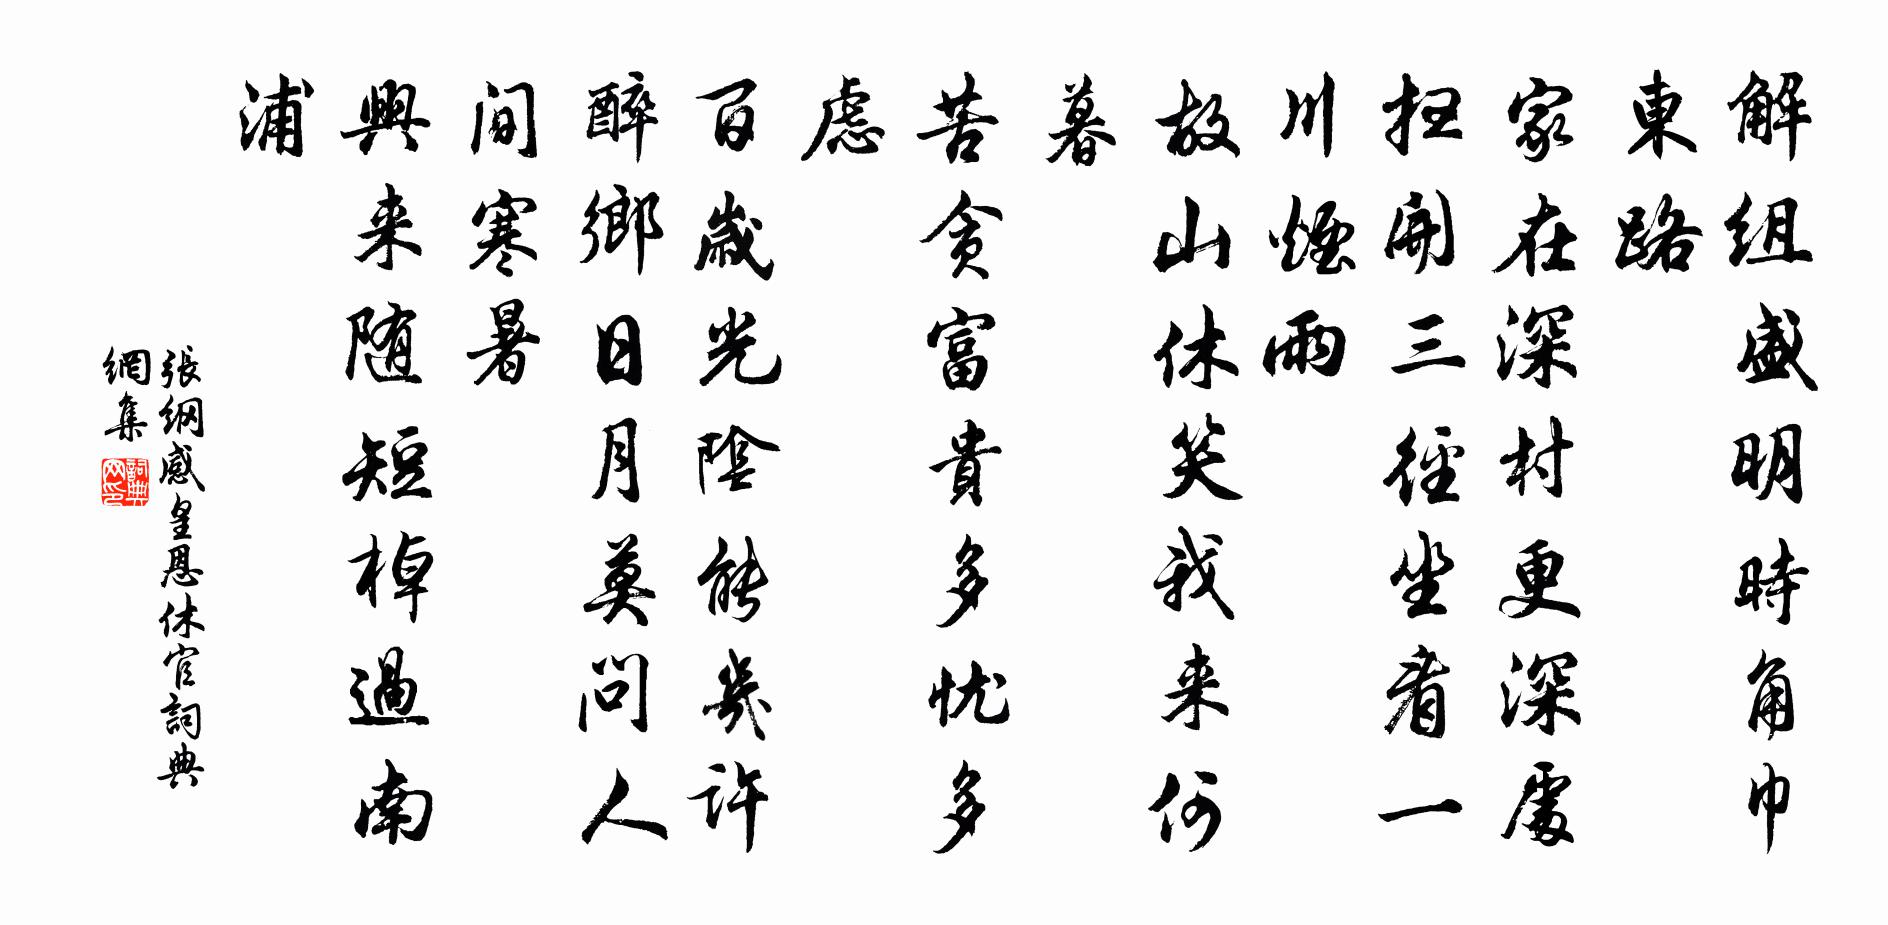 解組盛明時角巾
東路
家在深村更深處
扭開三徑坐看一
川煙雨
故山休笑我来何
暮
苦貪富貴多忧多
慮
百歲光陰能幾許
醉鄉日月莫問人
间寒暑
興来随短棹過南
浦
張纲感皇恩休官詞典
網集
詞典网印